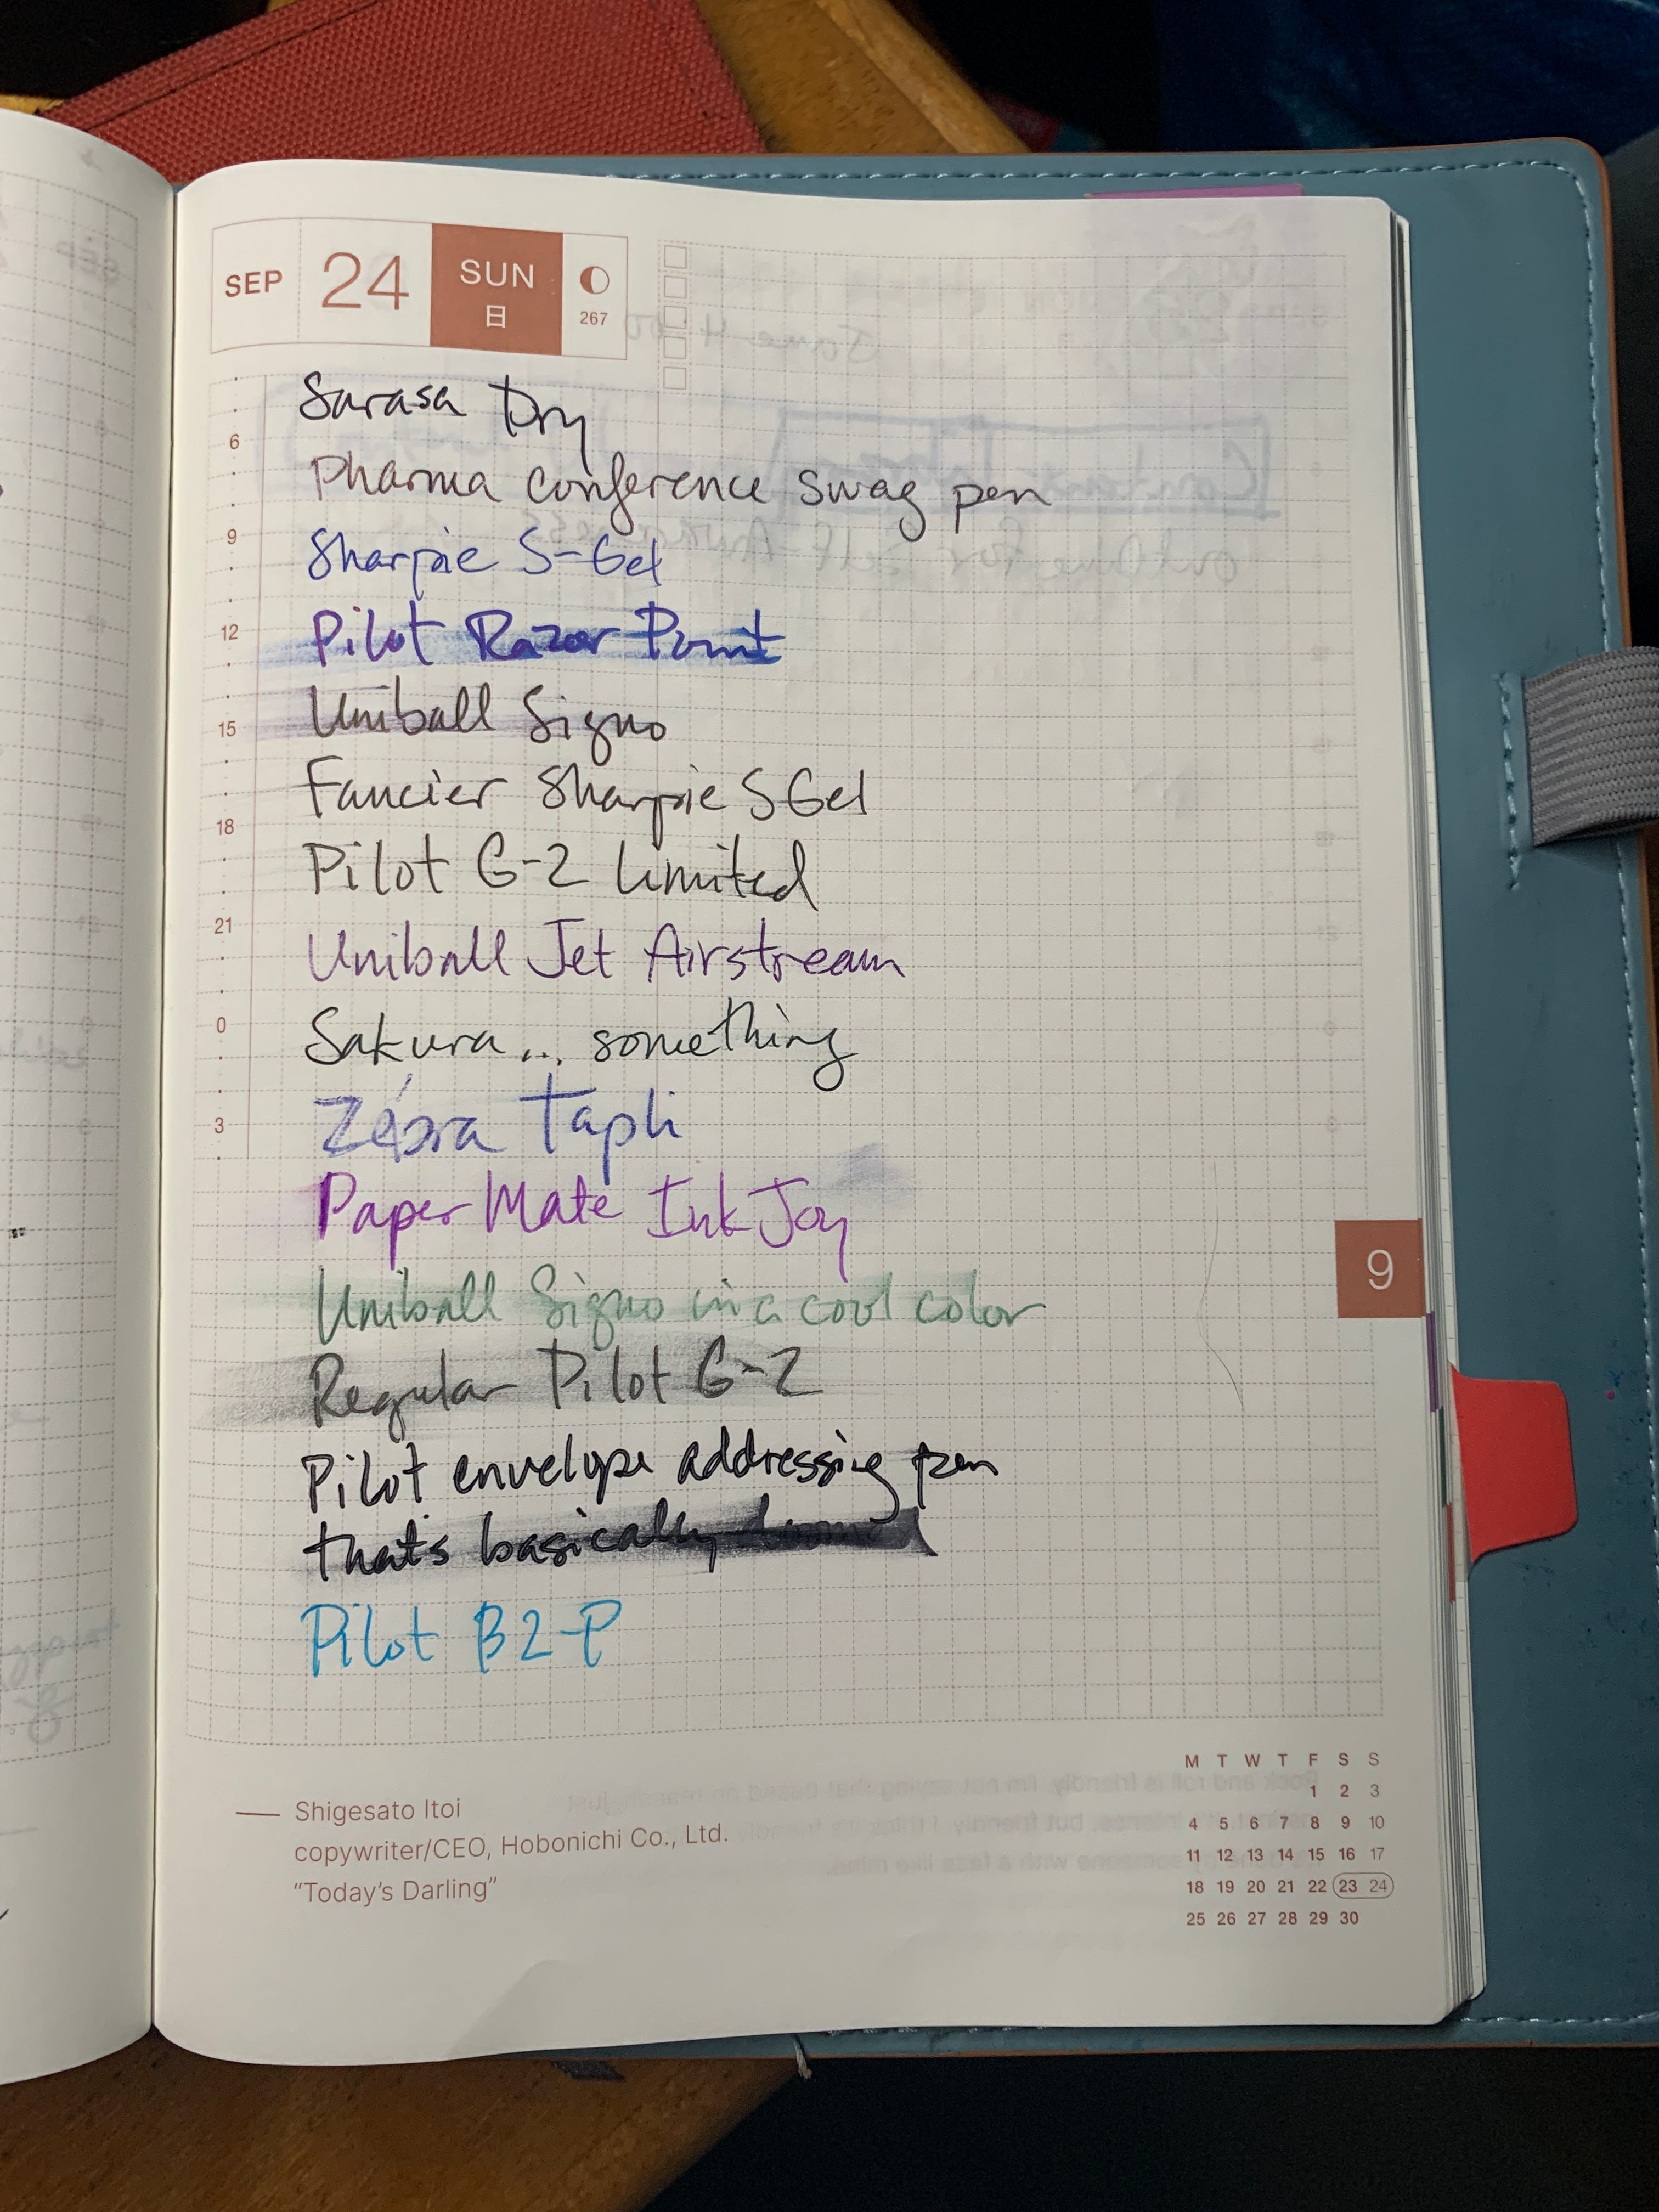 SEP 24 SUN
日
267
Sarasa Dry
6
Pharma conference swag pen
9
Sharpie S-Gel
12
Pilot Razor Point
15
Uniball Signo
Fancier Sharpie S Gel
18
Pilot G-2 Limited
21
Uniball Jet Airstream
0
Sakura... something
3
Zebra Tapli
Paper Mate Ink Joy
9
Uniball Signo in a cool color
Regular Pilot G-2
Pilot envelope addressing pen
that's basically
Pilot B2-P
Shigesato Itoi
copywriter/CEO, Hobonichi Co., Ltd.
"Today's Darling"
M T W T F S S
1 2 3
4 5 6 7 8 9 10
11 12 13 14 15 16 17
18 19 20 21 22 23 24
25 26 27 28 29 30